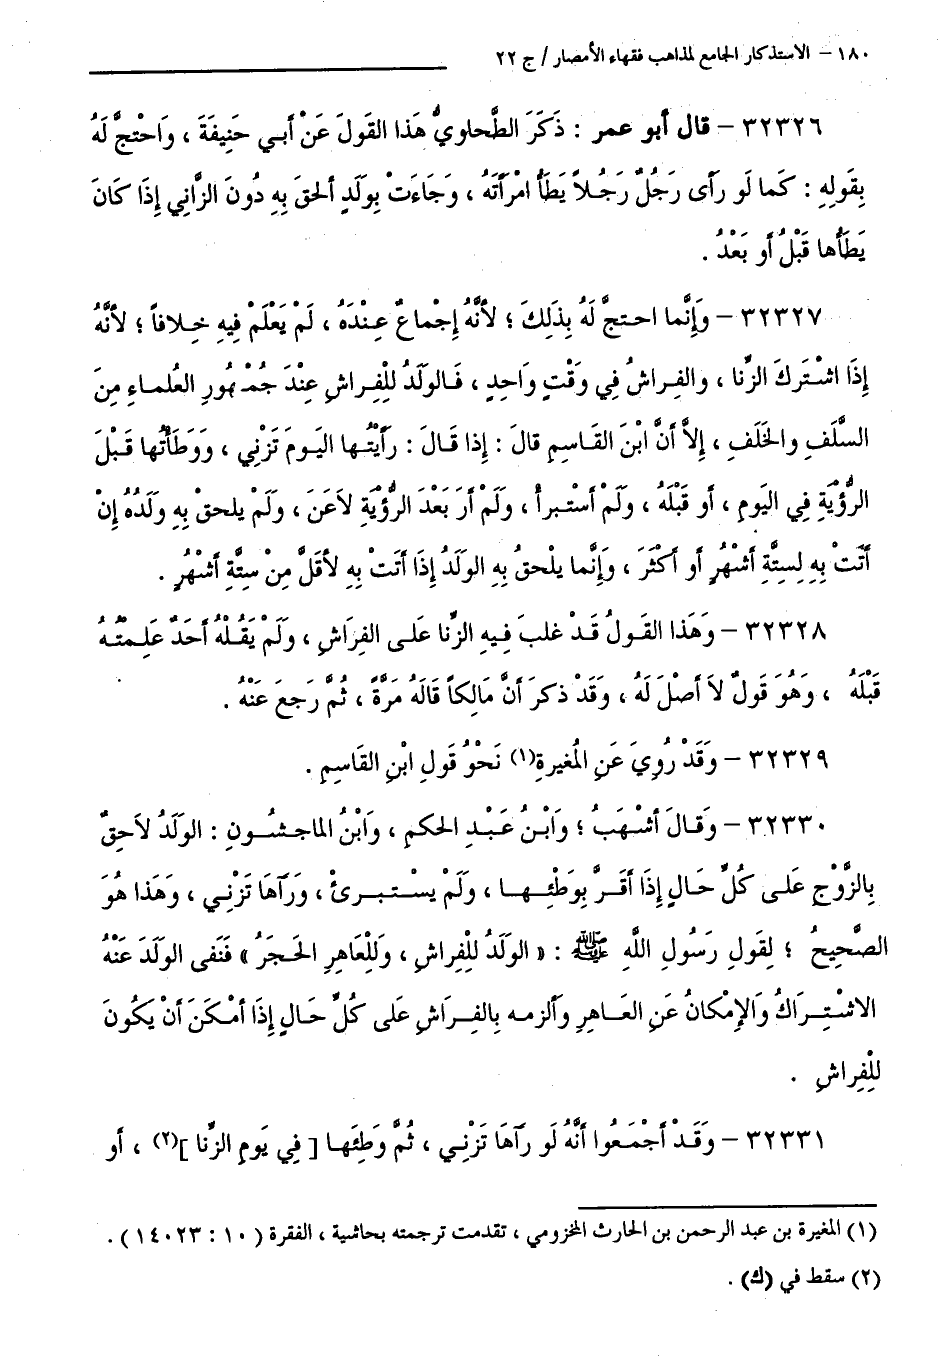 ١٨٠ – الاستذكار الجامع لمذاهب فقهاء الأمصار / ج ٢٢
٣٢٣٢٦ – قال أبو عمر : ذَكَرَ الطَّحاويُّ هَذا القَولَ عَنْ أبي حَنِيفَةَ ، وَاحْتجَّ لَهُ
بِقَولِهِ : كَما لَو رَأى رَجُلٌ رَجُلاً يَطَأُ امْرَأتَهُ ، وَجَاءَتْ بِوَلَدٍ ألحقَ بِهِ دُونَ الزَّاني إِذَا كَانَ
يَطَأُها قَبْلُ أو بَعْدُ .
٣٢٣٢٧ – وَإِنَّما احتجَّ لَهُ بِذَلِكَ ؛ لأنَّهُ إِجْماعٌ عِنْدَهُ ، لَمْ يَعْلَمْ فِيهِ خِلافاً ؛ لأنَّهُ
إِذَا اشْتَركَ الزِّنا ، والفِراشُ فِي وَقْتٍ وَاحِدٍ ، فَالولَدُ لِلْفِراشِ عِنْدَ جُمْهُورِ العُلَماءِ مِنَ
السَّلَفِ والخَلَفِ ، إِلاَّ أنَّ ابْنَ القَاسِمِ قالَ : إِذا قَالَ : رَأيْتُها اليَومَ تَزْنِي ، وَوَطَأْتُها قَبْلَ
الرُّؤْيَةِ فِي اليَومِ ، أو قَبْلَهُ ، وَلَمْ أسْتَبرأْ ، وَلَمْ أرَ بَعْدَ الرُّؤْيَةِ لاَعَنَ ، وَلَمْ يلحقْ بِهِ وَلَدُهُ إِنْ
أتَتْ بِهِ لِسِتَّةِ أشْهُرٍ أو أكْثَرَ ، وَإِنَّما يلحقُ بِهِ الوَلَدُ إِذَا أتَتْ بِهِ لأقَلَّ مِنْ سِتَّةِ أشْهُرٍ .
٣٢٣٢٨ – وَهَذا القَولُ قَدْ غلبَ فِيهِ الزِّنا عَلى الفِرَاشِ ، وَلَمْ يَقُلْهُ أحَدٌ عَلِمْتُهُ
قَبْلَهُ ، وَهُوَ قَولٌ لاَ أصْلَ لَهُ ، وَقَدْ ذكرَ أنَّ مَالِكاً قَالَهُ مَرَّةً ، ثُمَّ رَجعَ عَنْهُ .
٣٢٣٢٩ – وَقَدْ رُوِيَ عَنِ المُغيرةِ(١) نَحْوُ قَولِ ابْنِ القَاسِمِ .
٣٢٣٣٠ – وَقَالَ أشْهَبُ ؛ وَابْنُ عَبْدِ الحكمِ ، وَابْنُ الماجشُونِ : الوَلَدُ لاَحِقٌ
بِالزَّوْجِ عَلى كُلِّ حَالٍ إِذَا أقَرَّ بِوَطْئِها ، وَلَمْ يسْتبرئْ ، وَرَآهَا تَزْنِي ، وَهَذا هُوَ
الصَّحِيحُ ؛ لِقَولِ رَسُولِ اللَّهِ ﷺ : « الوَلَدُ لِلْفِراشِ ، وَلِلْعاهِرِ الحَجَرُ » فَنَفى الوَلَدَ عَنْهُ
الاشْتِراكُ وَالإِمْكانُ عَنِ العَاهرِ وَألزمه بِالفِرَاشِ عَلى كُلِّ حَالٍ إِذَا أمْكَنَ أنْ يَكُونَ
لِلْفِراشِ .
٣٢٣٣١ – وَقَدْ أجْمَعُوا أنَّهُ لَو رَآهَا تَزْنِي ، ثُمَّ وَطِئَها [ فِي يَومِ الزِّنا ](٢) ، أو
(١) المغيرة بن عبد الرحمن بن الحارث المخزومي ، تقدمت ترجمته بحاشية ، الفقرة ( ١٠ : ١٤٠٢٣ ) .
(٢) سقط في (ك) .